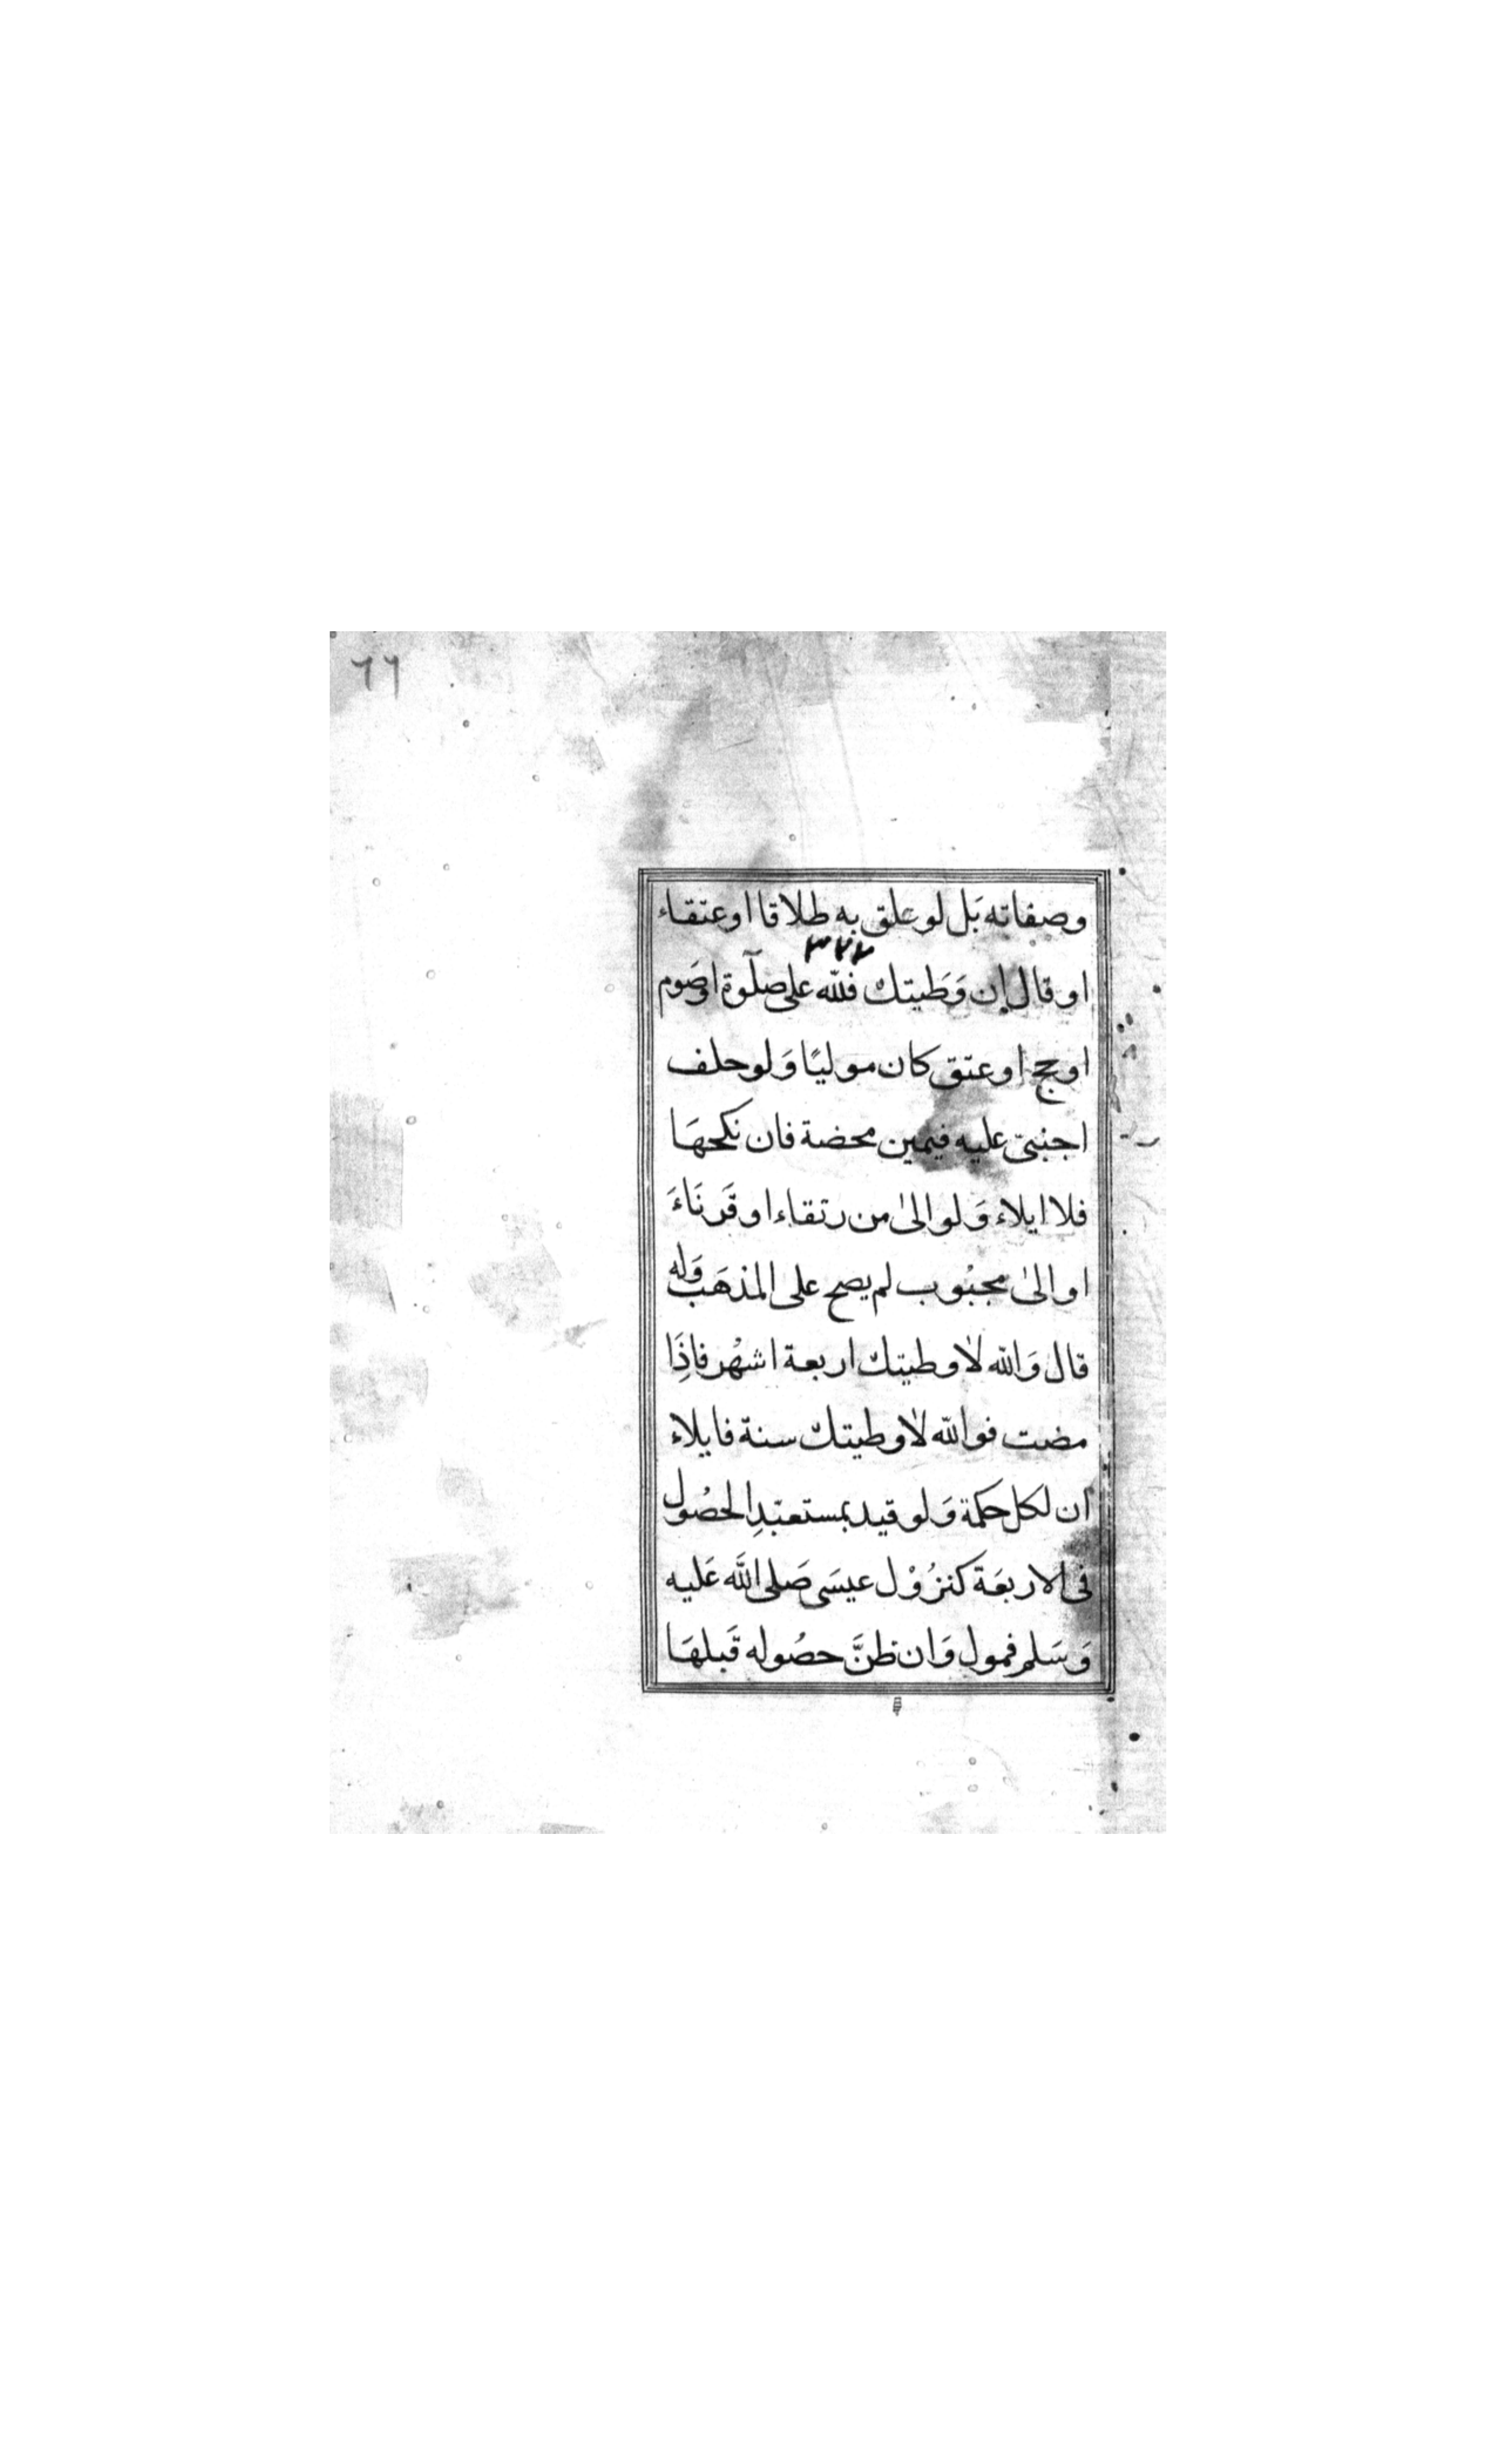 ٦٦
وصفاته بَل لو علق به طلاقا او عتقاء
٣٧٧
او قال إن وَطيتك فللّه على صلوة او صَوم
او حج او عتق كان موليًا وَلو حلف
اجنبىّ عليه فيمين محضة فان نكحهَا
فلا ايلاء وَلو الىٰ من رتقاء او قَرنَاءَ
او الىٰ مجبُوب لم يصح على المذهَب وَله
قال وَالله لا وطيتكّ اربعة اشهُر فاِذَا
مضت فوالله لا وطيتكّ سنة فايلاء
ان لكل حكمة وَلو قيد بمستعبَدِ الحصُول
فى الاربعَة كنزُوْل عيسَى صَلى اللَّه عَليه
وَسَلم فمولِ وَان ظنَّ حصُوله قَبلهَا